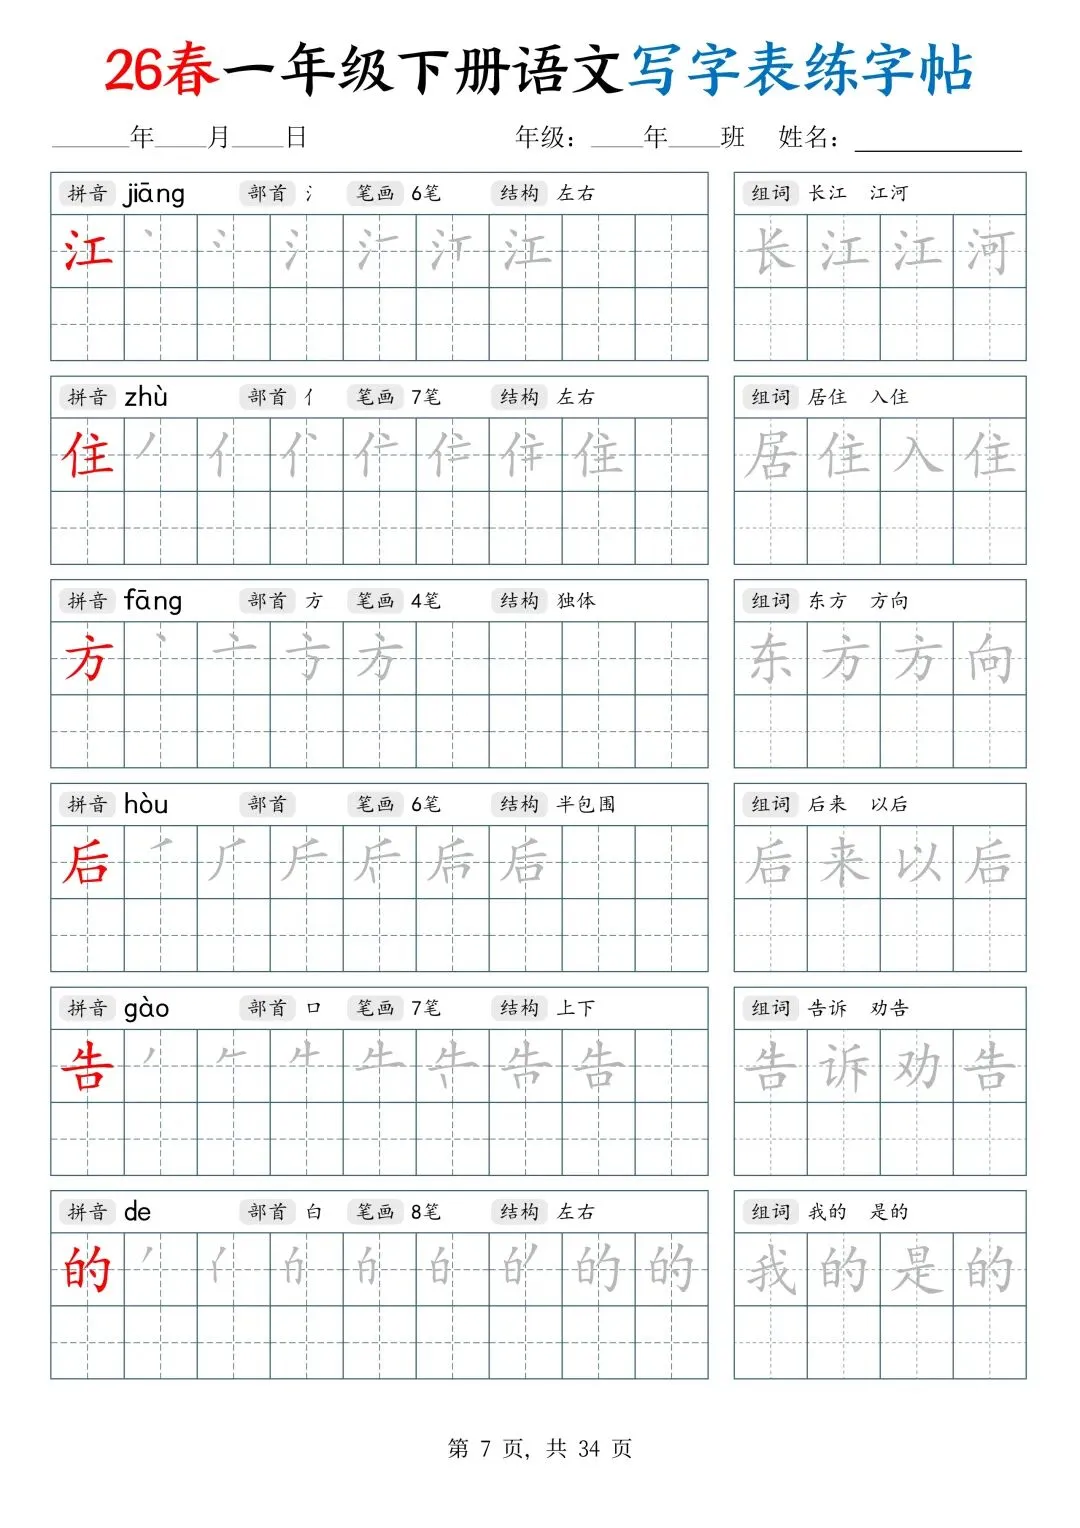 26春一年级下册语文写字表练字帖
______年____月____日 年级：____年____班 姓名：____________
拼音 jiāng 部首 氵 笔画 6笔 结构 左右 组词 长江 江河
江 江 长江江河
拼音 zhù 部首 亻 笔画 7笔 结构 左右 组词 居住 入住
住 住 居住入住
拼音 fāng 部首 方 笔画 4笔 结构 独体 组词 东方 方向
方 方 东方方向
拼音 hòu 部首 笔画 6笔 结构 半包围 组词 后来 以后
后 后 后来以后
拼音 gào 部首 口 笔画 7笔 结构 上下 组词 告诉 劝告
告 告 告诉劝告
拼音 de 部首 白 笔画 8笔 结构 左右 组词 我的 是的
的 的 的 我的是的
第 7 页, 共 34 页